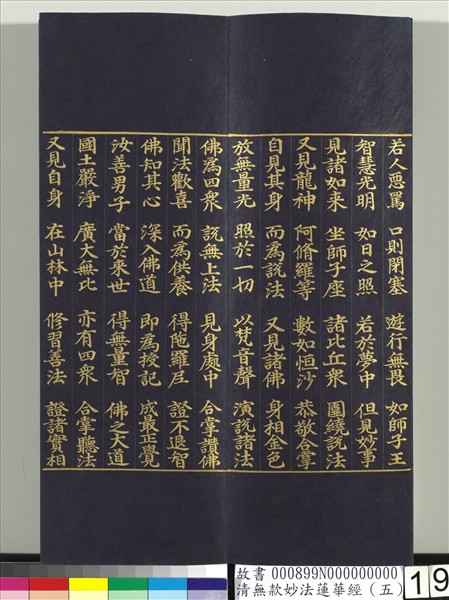 若人惡罵　口則閉塞　遊行無畏　如師子王
智慧光明　如日之照　若於夢中　但見妙事
見諸如來　坐師子座　諸比丘衆　圍繞說法
又見龍神　阿脩羅等　數如恒沙　恭敬合掌
自見其身　而為說法　又見諸佛　身相金色
放無量光　照於一切　以梵音聲　演說諸法
佛為四衆　說無上法　見身處中　合掌讚佛
聞法歡喜　而為供養　得陁羅尼　證不退智
佛知其心　深入佛道　即為授記　成最正覺
汝善男子　當於來世　得無量智　佛之大道
國土嚴淨　廣大無比　亦有四衆　合掌聽法
又見自身　在山林中　修習善法　證諸實相
故書 000899N000000000
清無款妙法蓮華經（五）
19